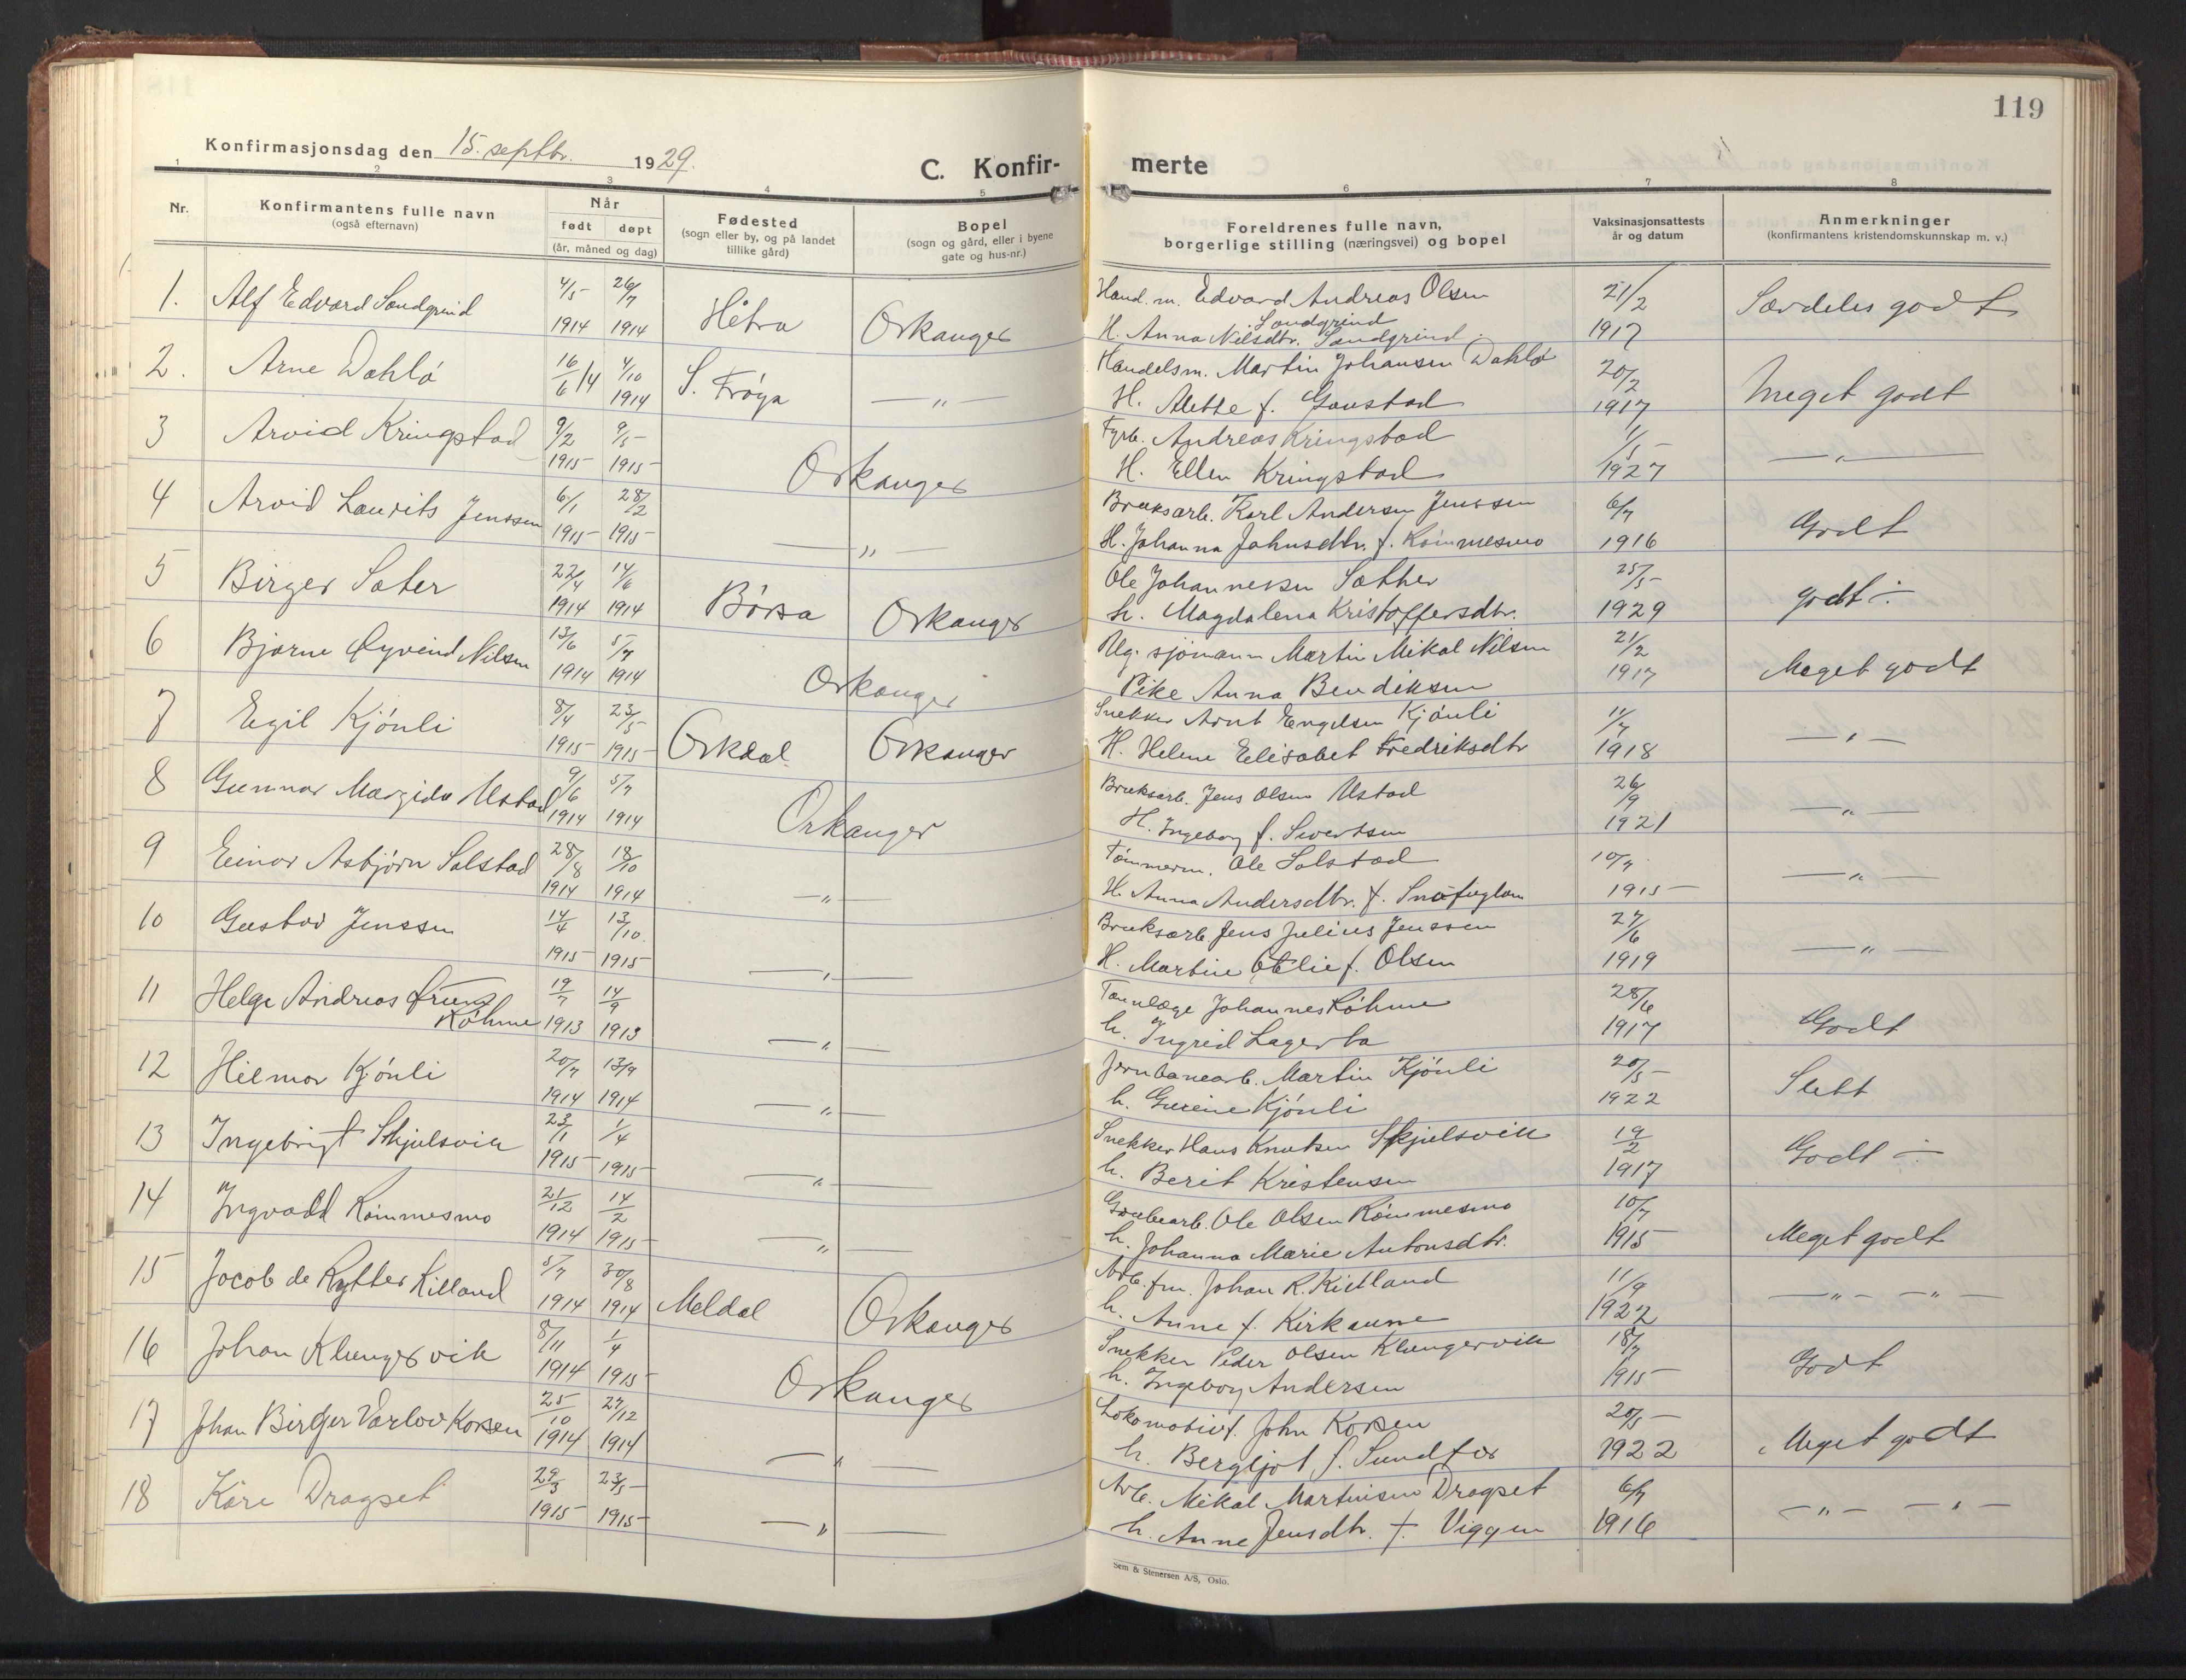 119
Konfirmasjonsdag den 15. septbr. 1929.
C. Konfir-
merte
1 2 3 4 5 6 7 8
Nr.
Konfirmantens fulle navn
(også efternavn)
Når
født døpt
(år, måned og dag)
Fødested
(sogn eller by, og på landet
tillike gård)
Bopel
(sogn og gård, eller i byene
gate og hus-nr.)
Foreldrenes fulle navn,
borgerlige stilling (næringsvei) og bopel
Vaksinasjonsattests
år og datum
Anmerkninger
(konfirmantens kristendomskunnskap m. v.)
1. Alf Edvard Sandgrind 4/5 1914 26/7 1914 Hitra Orkanger
Hand. m. Edvard Andreas Olsen Sandgrind
H. Anna Nilsdtr. Sandgrind.
21/2 1917 Særdeles godt
2. Arne Dahlö 16/6 14 4/10 1914 S. Fröya — „ —
Handelsm. Martin Johansen Dahlö
H. Alette f. Gaustad
20/2 1917 Meget godt
3 Arvid Kringstad 9/2 1915 9/5 1915 Orkanger
Fyrb. Andreas Kringstad
H. Ellen Kringstad
1/5 1927 — „ —
4 Arvid Laurits Jenssen 6/1 1915 28/2 1915 — „ —
Bruksarb. Karl Andersen Jenssen
H. Johanna Johnsdtr. f. Römmesmo
6/7 1916 Godt
5 Birger Sæter 22/4 1914 14/6 1914 Börsa Orkanger
Ole Johannessen Sæther
h. Magdalena Kristoffersdtr.
25/5 1929 godt ÷
6 Bjarne Øyvind Nilsen 13/6 1914 5/7 1914 Orkanger
Ug. sjömann Martin Mikal Nilsen
Pike Anna Bendiksen
21/2 1917 Meget godt
7 Egil Kjönli 8/4 1915 23/5 1915 Orkdal Orkanger
Snekker Arnt Engelsen Kjönli
H. Helene Elisabet Fredriksdtr
11/7 1918 — „ —
8 Gunnar Margido Ustad 9/6 1914 5/7 1914 Orkanger
Bruksarb. Jens Olsen Ustad
H. Ingeborg f. Sivertsen
26/9 1921 — „ —
9 Einar Asbjørn Solstad 28/8 1914 18/10 1914 — „ —
Tömmerm. Ole Solstad
H. Anna Andersdtr. f. Snøfuglan
10/7 1915 — „ —
10 Gustav Jenssen 14/4 1915 13/10 1915 — „ —
Bruksarb. Jens Julius Jenssen
H. Martine Otelie f. Olsen
27/6 1919 — „ —
11 Helge Andreas Köhme 19/7 1913 14/9 1913 — „ —
Tannlæge Johannes Köhme
h. Ingrid Lagerta
28/6 1917 Godt
12 Hilmar Kjönli 20/7 1914 13/9 1914 — „ —
Jernbanearb. Martin Kjönli
h. Gurine Kjönli
20/5 1922 Slett
13 Ingebrigt Skjulsvik 23/1 1915 1/4 1915 — „ —
Snekker Hans Knutsen Skjulsvik
h. Berit Kristensen
19/2 1917 Godt ÷
14 Ingvald Römmesmo 21/12 1914 14/2 1915 — „ —
Grubearb. Ole Olsen Römmesmo
h. Johanna Marie Antonsdtr.
10/7 1915 Meget godt
15 Jacob de Rytter Killand 5/7 1914 30/8 1914 Meldal Orkanger
Arb. fm. Johan R. Kielland
h. Anne f. Kirkaune
11/9 1922 — „ — „ —
16 Johan Klungervik 8/11 1914 1/4 1915 Orkanger
Snekker Peder Olsen Klungervik
h. Ingeborg Andersen
18/7 1915 Godt
17 Johan Birger Varlov Korsen 25/10 1914 27/12 1914 — „ —
Lokomotivf. John Korsen
h. Bergljot f. Sundfær
20/5 1922 Meget godt
18 Kåre Dragset 29/3 1915 23/5 1915 — „ —
Arb. Mikal Martinsen Dragset
h. Anne Jensdtr. f. Viggen
6/7 1916 — „ — „ —
Sem & Stenersen A/S, Oslo.